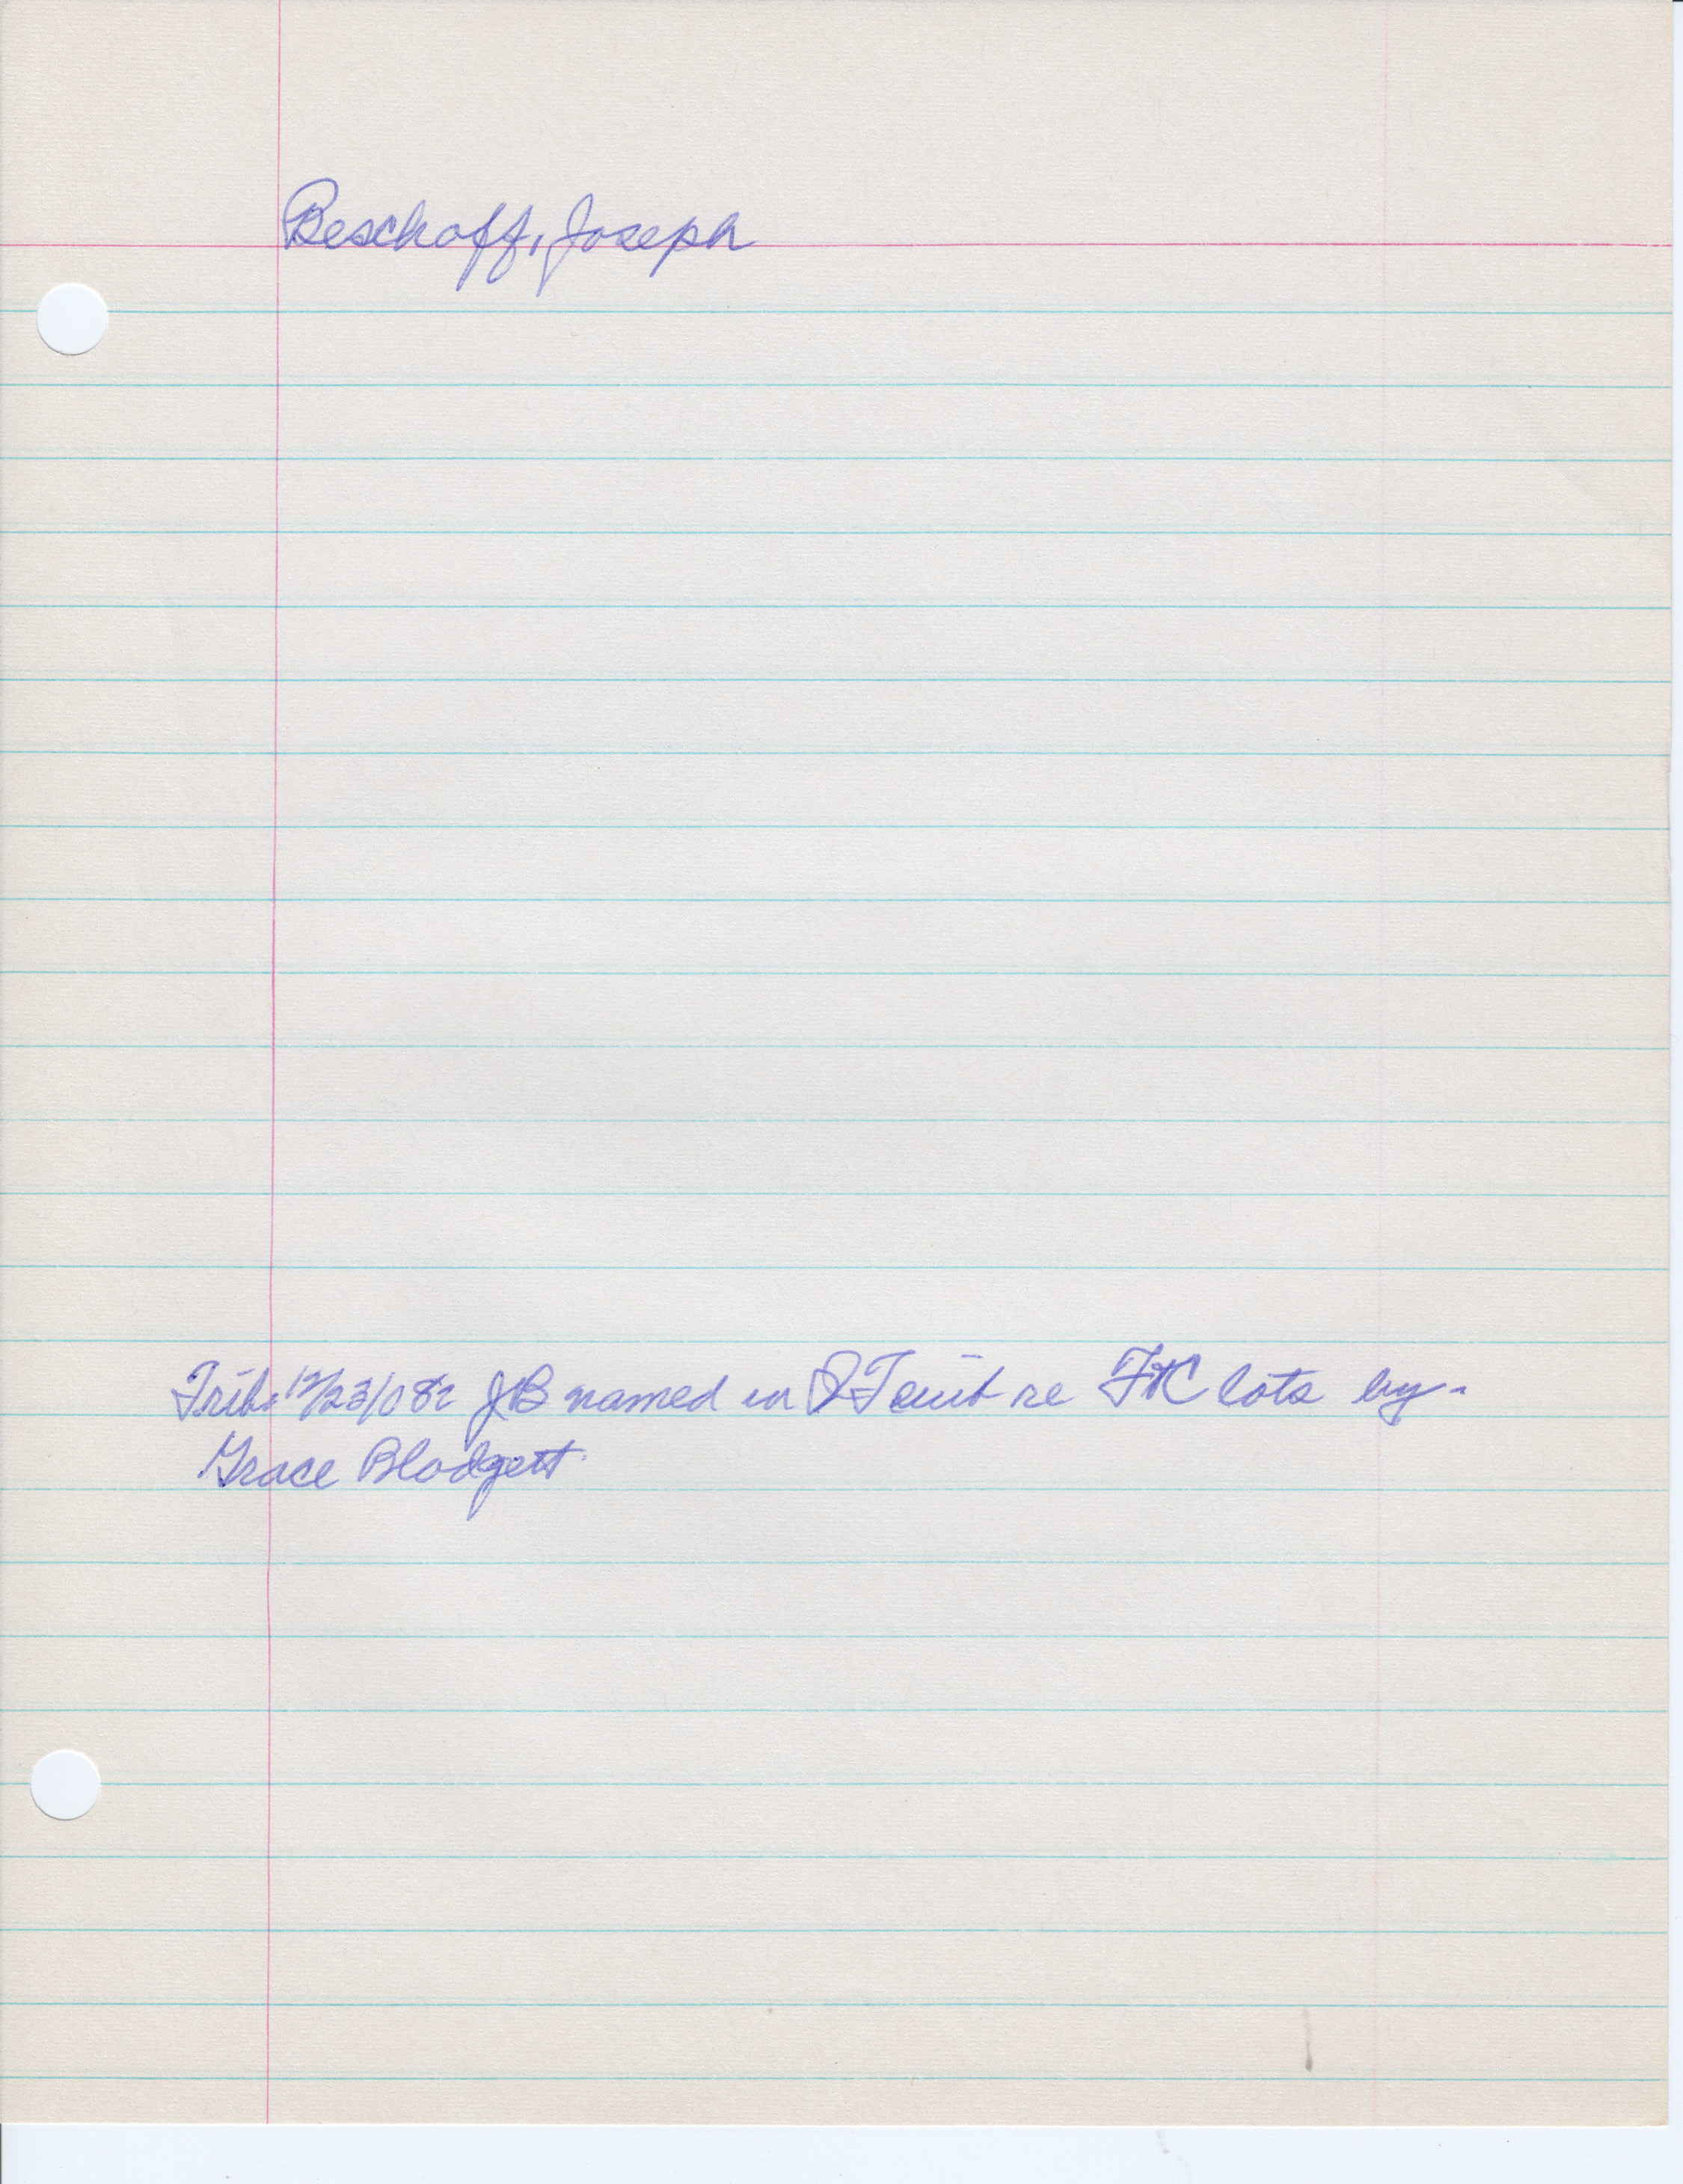 Beschoff, Joseph
Trib. 12/23/082 JB named in QT suit re FtC lots by -
Grace Blodgett.